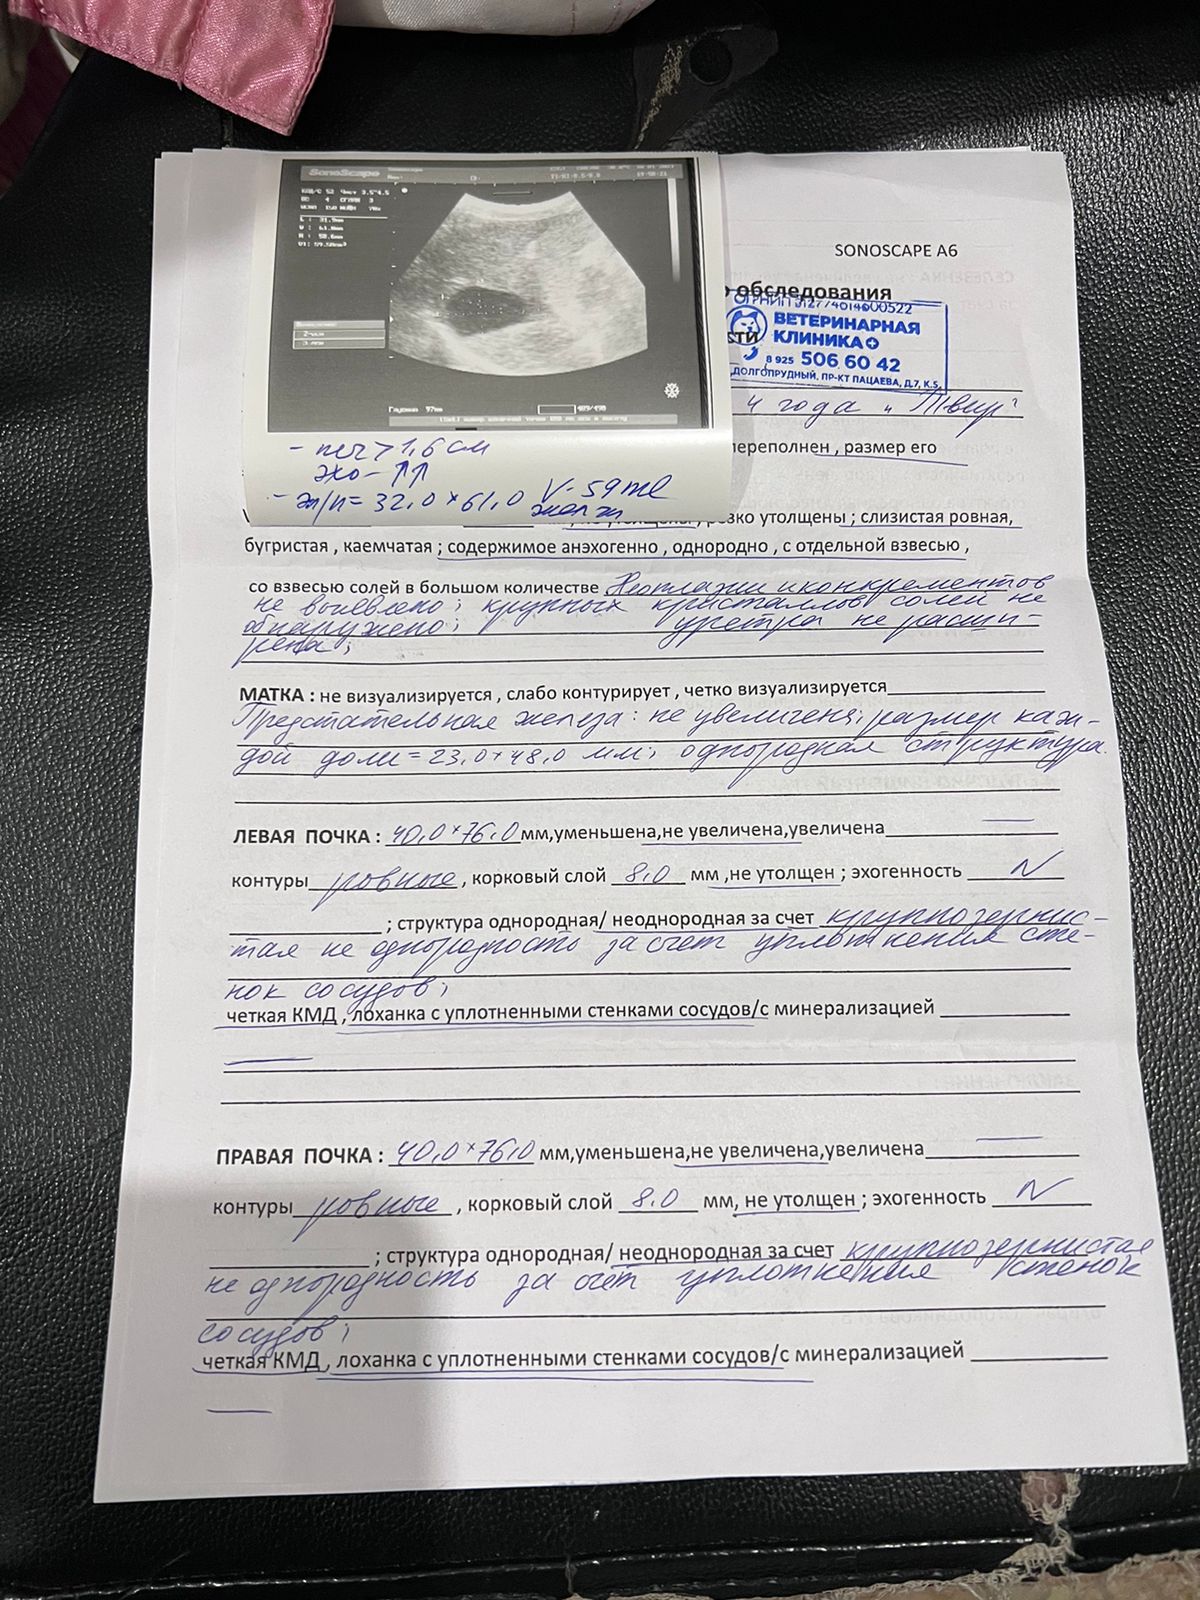 SonoScape
Глубина 97мм
- печ > 1,6 см
эхо - ↑↑
- ж/п = 32,0 × 61,0 V-59ml
желчи
SONOSCAPE A6
обследования
ОГРНИП 312774614600522
ВЕТЕРИНАРНАЯ
КЛИНИКА
8 925 506 60 42
ДОЛГОПРУДНЫЙ, ПР-КТ ПАЦАЕВА, Д.7, К.5
4 года
переполнен , размер его
резко утолщены ; слизистая ровная,
бугристая , каемчатая ; содержимое анэхогенно , однородно , с отдельной взвесью ,
со взвесью солей в большом количестве Неоплазии и конкрементов
не выявлено; крупных кристаллов солей не
обнаружено; уретра не расши-
рена;
МАТКА : не визуализируется , слабо контурирует , четко визуализируется
Предстательная железа: не увеличена; размер каж-
дой доли = 23,0 × 48,0 мм; однородная структура.
ЛЕВАЯ ПОЧКА : 40,0 × 76,0 мм,уменьшена,не увеличена,увеличена —
контуры ровные , корковый слой 8,0 мм ,не утолщен ; эхогенность N
; структура однородная/ неоднородная за счет крупнозернис-
тая не однородность за счет уплотнения сте-
нок сосудов;
четкая КМД , лоханка с уплотненными стенками сосудов/с минерализацией
—
ПРАВАЯ ПОЧКА : 40,0 × 76,0 мм,уменьшена,не увеличена,увеличена —
контуры ровные , корковый слой 8,0 мм, не утолщен ; эхогенность N
; структура однородная/ неоднородная за счет крупнозернистая
не однородность за счет уплотнения стенок
сосудов;
четкая КМД , лоханка с уплотненными стенками сосудов/с минерализацией
—